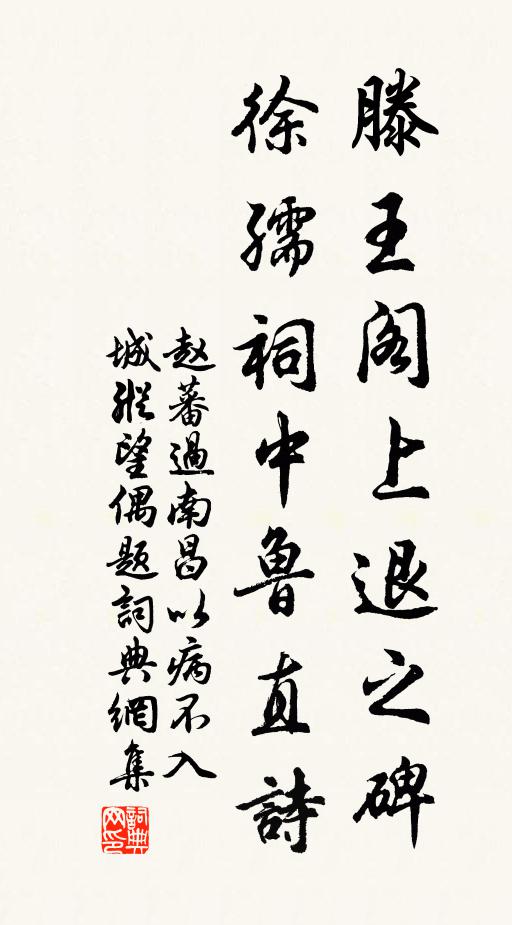 滕王阁上退之碑
徐孺祠中魯直詩
赵蕃過南昌以病不入
城縱望偶題詞典網集
詞典
网印